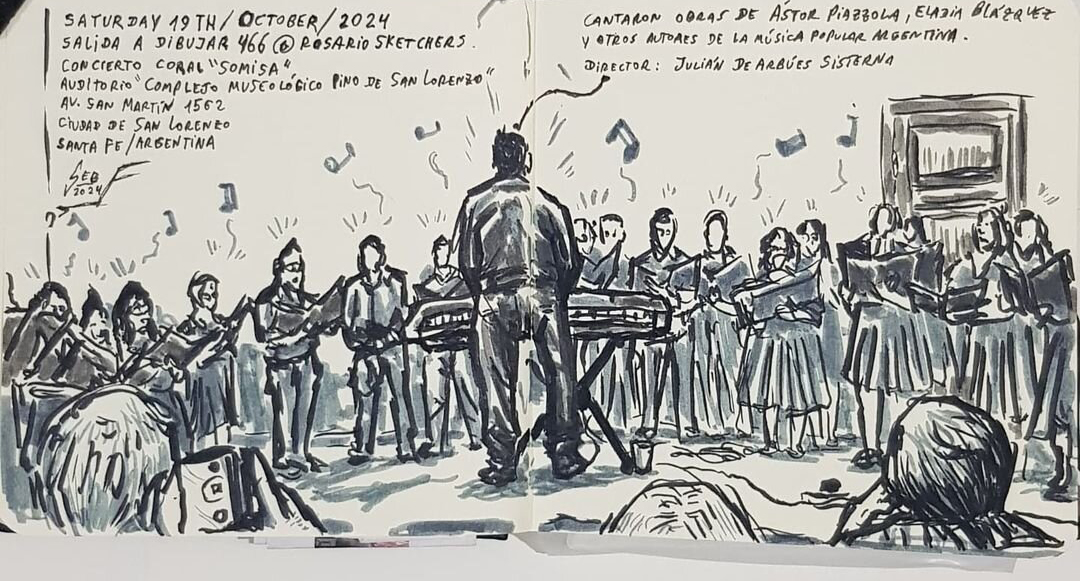 SATURDAY 19TH/OCTOBER/2024
SALIDA A DIBUJAR 466 @ ROSARIO SKETCHERS.
CONCIERTO CORAL "SOMISA"
AUDITORIO "COMPLEJO MUSEOLÓGICO PINO DE SAN LORENZO"
AV. SAN MARTÍN 1562
CIUDAD DE SAN LORENZO
SANTA FE/ARGENTINA
SEB
2024
CANTARON OBRAS DE ÁSTOR PIAZZOLA, ELADIA BLÁZQUEZ
Y OTROS AUTORES DE LA MÚSICA POPULAR ARGENTINA.
DIRECTOR: JULIÁN DE ARBÚES SISTERNA